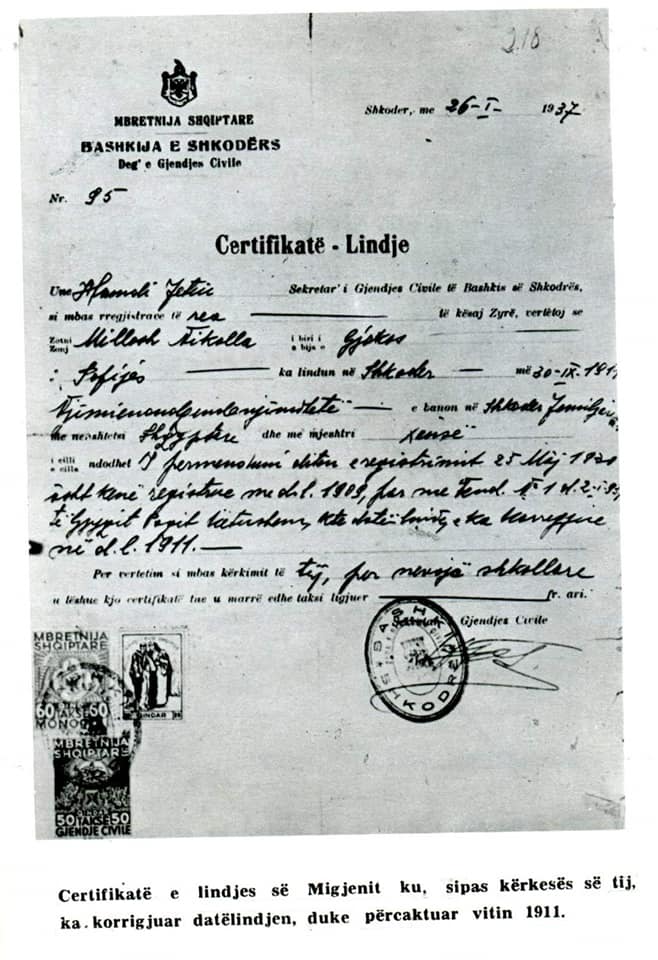 218
MBRETNIJA SHQIPTARE
BASHKIJA E SHKODËRS
Deg' e Gjendjes Civile
Shkoder, me 26-I- 1937
Nr. 95
Certifikatë - Lindje
Une Hamdi Sekretar' i Gjendjes Civile të Bashkis së Shkodrës,
si mbas rregjistrave të rea të kësaj Zyrë, vërtëtoj se
Zotni Zonj Millosh Nikolla i biri i a bija e Gjokos
: Sofijës ka lindun në Shkoder më 30-IX-1911
e banon në Shkoder
me nenshtetsi Shqyptare dhe me mjeshtri
i cilli e cilla ndodhet I permenduni ditën e registrimit 25 Maj
është kenë registrue me d.l. 1909, por me Vend.
kte datë lindje e ka korregjue
në d.l. 1911.—
Per vertetim si mbas kërkimit të tij, per nevojë shkollare
u lëshue kjo certifikatë tue u marrë edhe taksë ligjuer fr. ari.
Sekretar i Gjendjes Civile
BASHKIJA SHKODRËS
MBRETNIJA
SHQIPTARE
60 TAKSE 60
MBRETNIJA
SHQIPTARE
50 TAKSE 50
GJENDJE CIVILE
QINDAR 25
Certifikatë e lindjes së Migjenit ku, sipas kërkesës së tij,
ka korrigjuar datëlindjen, duke përcaktuar vitin 1911.